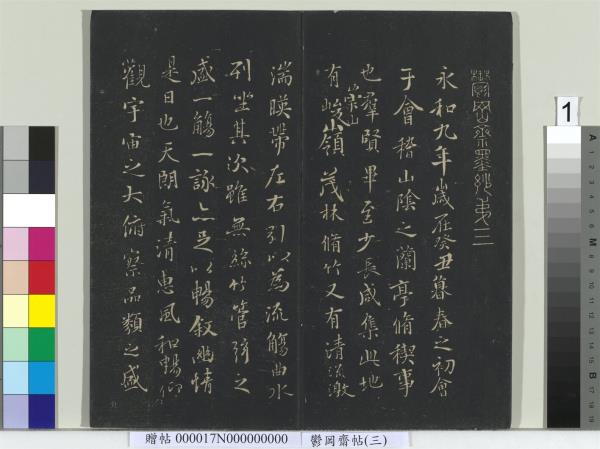 鬱岡齋墨妙第三
永和九年歲在癸丑暮春之初會
于會稽山陰之蘭亭脩禊事
也羣賢畢至少長咸集此地
有崇山峻嶺茂林脩竹又有清流激
湍暎帶左右引以為流觴曲水
列坐其次雖無絲竹管弦之
盛一觴一詠亦足以暢敘幽情
是日也天朗氣清惠風和暢仰
觀宇宙之大俯察品類之盛
1
A
1
2
3
4
5
6
M
8
9
10
11
12
13
14
15
B
17
18
19
贈帖 000017N000000000
鬱岡齋帖(三)